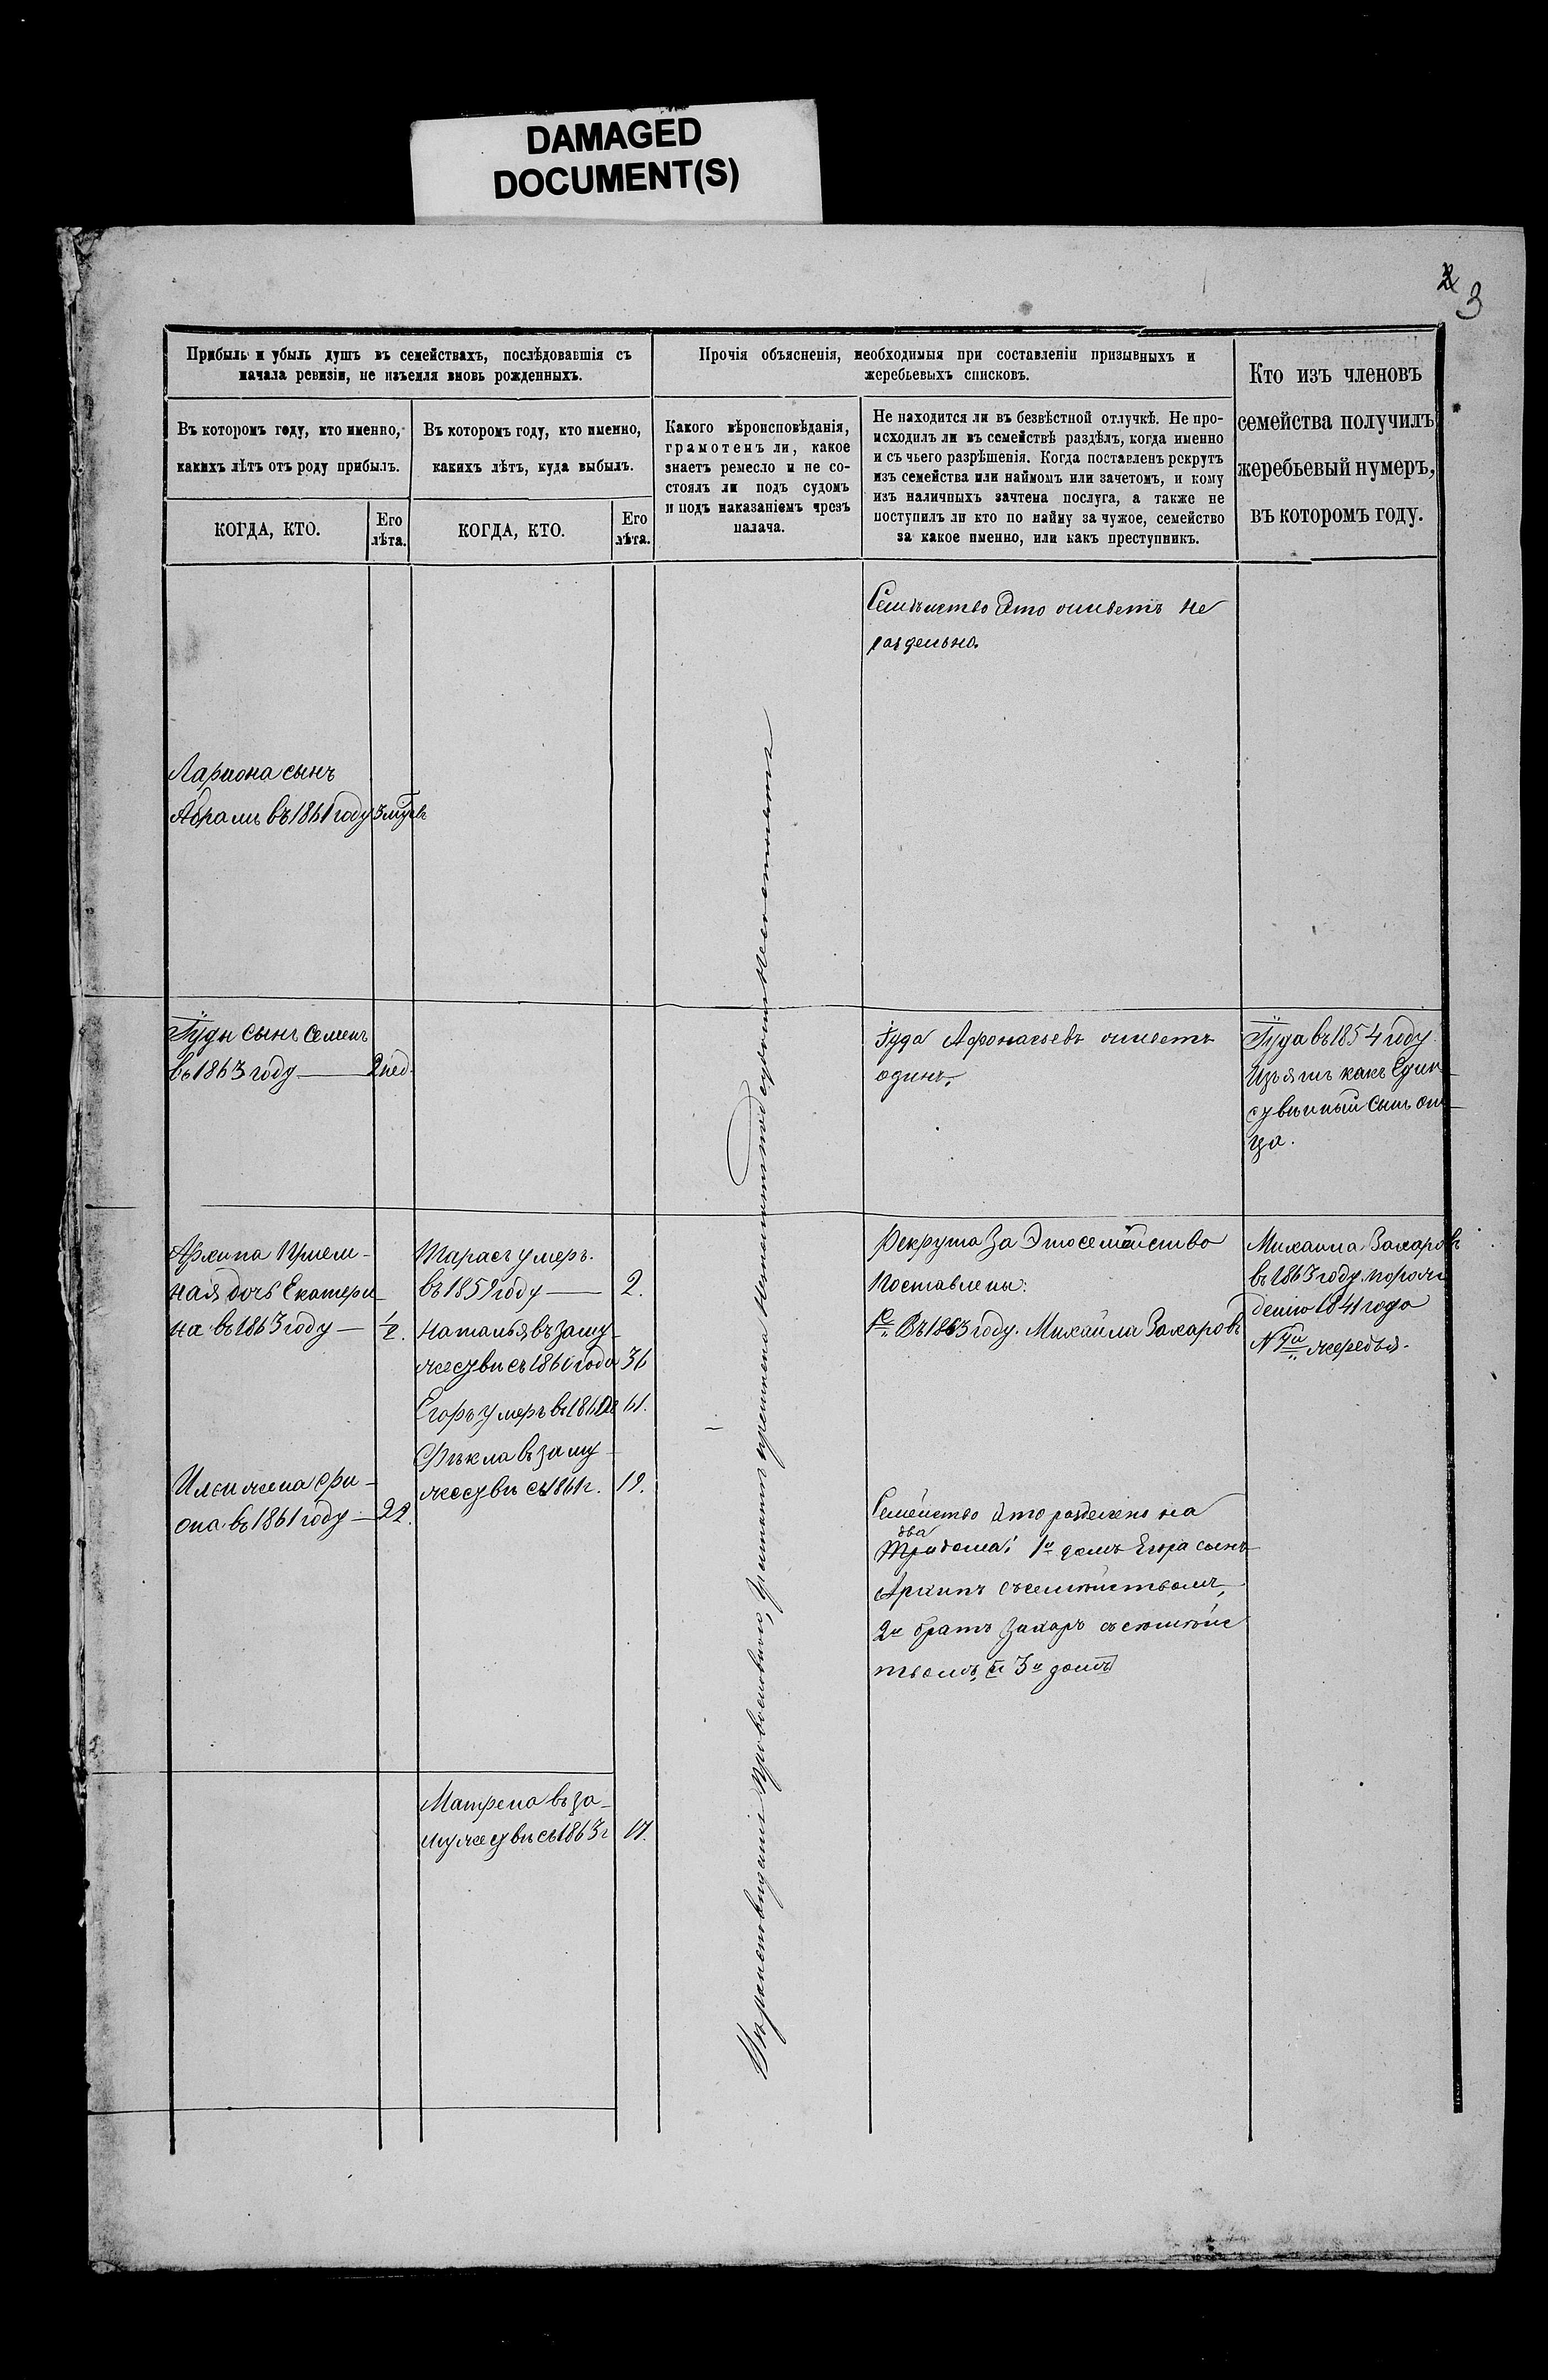 DAMAGED
DOCUMENT(S)
3
Прибыль и убыль душъ въ семействахъ, послѣдовавшія съ
начала ревизіи, не изъемля вновь рожденныхъ.
Въ которомъ году, кто именно,
какихъ лѣтъ отъ роду прибылъ.
КОГДА, КТО.
Его
лѣта.
Въ которомъ году, кто именно,
какихъ лѣтъ, куда выбылъ.
КОГДА, КТО.
Его
лѣта.
Прочія объясненія, необходимыя при составленіи призывныхъ и
жеребьевыхъ списковъ.
Какого вѣроисповѣданія,
грамотенъ ли, какое
знаетъ ремесло и не со-
стоялъ ли подъ судомъ
и подъ наказаніемъ чрезъ
палача.
Не находится ли въ безвѣстной отлучкѣ. Не про-
исходилъ ли въ семействѣ раздѣлъ, когда именно
и съ чьего разрѣшенія. Когда поставленъ рекрутъ
изъ семейства или наймомъ или зачетомъ, и кому
изъ наличныхъ зачтена послуга, а также не
поступилъ ли кто по найму за чужое, семейство
за какое именно, или какъ преступникъ.
Кто изъ членовъ
семейства получилъ
жеребьевый нумеръ,
въ которомъ году.
Лариона сынъ
Абрамъ въ 1861 году
Іуды сынъ Семенъ
въ 1863 году — 2 нед.
Архипа прием-
ная дочь Екатери-
на въ 1863 году — 1/2.
жена
въ 1861 году — 22.
Тарасъ умеръ.
въ 1859 году — 2.
Наталья въ заму-
жествѣ съ 1860 года 36
Егоръ умеръ въ 61.
Фекла въ заму-
жествѣ съ 1861 г. 19.
Матрена въ за-
мужествѣ съ 1863 г 17.
Вѣроисповѣданія Православнаго,
Семѣйство это живетъ не
раздельно.
Іуда Афонасьевъ живетъ
одинъ.
Рекрута за это семейство
поставлены:
1е Въ 1863 году. Михаила Захаровъ
Семейство это разделено на
два
Три дома: 1й домъ Егора сынъ
Архипъ съ семѣйствомъ,
2й братъ Захаръ съ семѣйс
твомъ, и 3й домъ
Іуда въ 1854 году
Изъятъ какъ един-
ственный сынъ от-
ца.
Михаила Захаровъ
въ 1863 году по рож
дению 1841 года
жеребья.